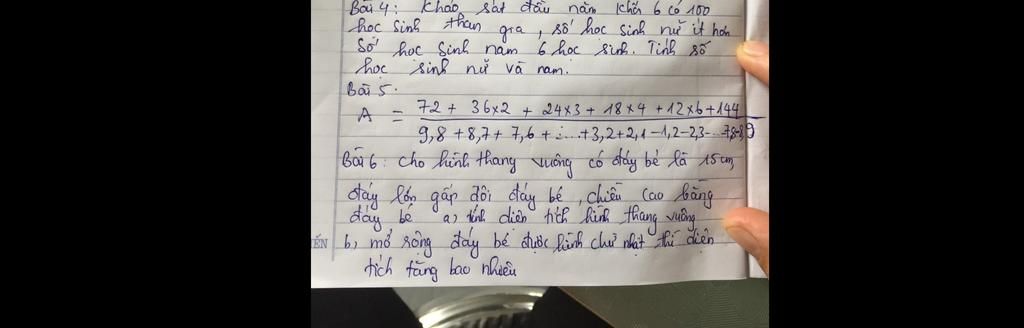 Bài 4: Khảo sát đầu năm khối 6 có 100
học sinh than gra, số học sinh nữ ít hơn
số học sinh nam 6 học sinh. Tính số
học sinh nữ và nam.
Bài 5.
A = 72 + 36x2 + 24x3 + 18x4 + 12x6 + 144
9,8 + 8,7 + 7,6 + ... + 3,2 + 2,1 - 1,2 - 2,3 - ... 7,8 - 8,9
Bài 6: cho hình thang vuông có đáy bé là 15cm,
đáy lớn gấp đôi đáy bé, chiều cao bằng
đáy bé a, tính diện tích hình thang vuông
b, mở rộng đáy bé được hình chữ nhật thì diện
tích tăng bao nhiêu